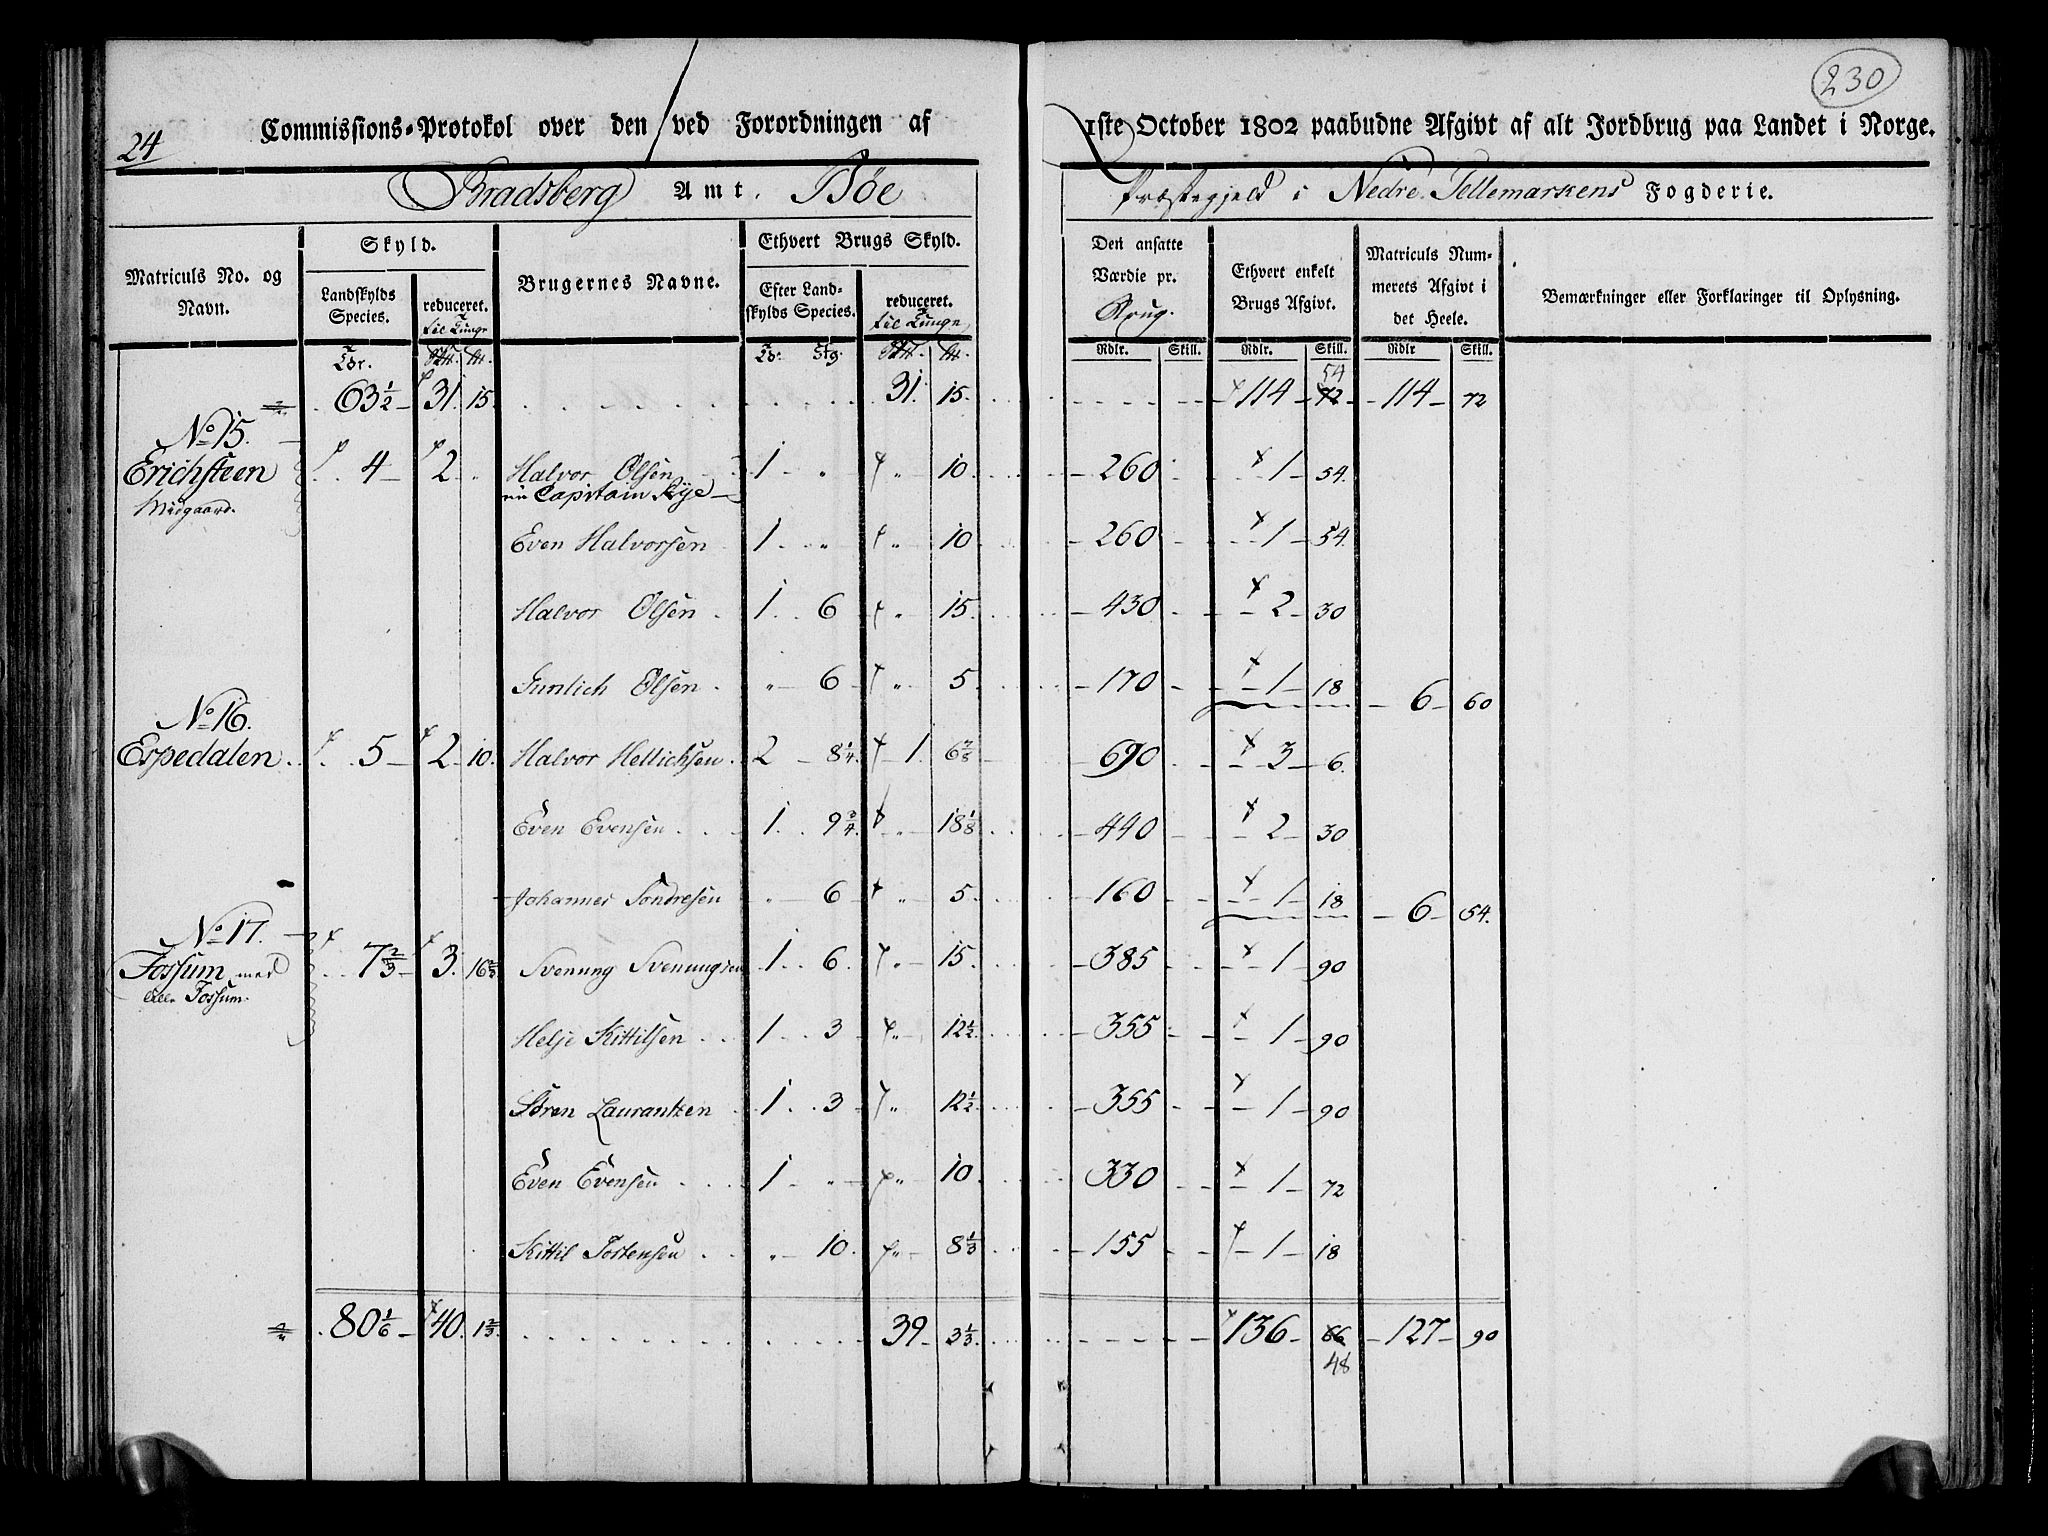 24
230
Commissions-Protokol over den ved Forordningen af 1ste October 1802 paabudne Afgivt af alt Jordbrug paa Landet i Norge.
Bradsberg Amt. Bøe Præstegjeld i Nedre Tellemarkens Fogderie.
Matriculs No. og Navn.
Skyld.
Landskylds Species.
reduceret. til Tunge
Brugernes Navne.
Ethvert Brugs Skyld.
Efter Landskylds Species.
reduceret. til Tunge
Den ansatte Værdie pr. Brug.
Ethvert enkelt Brugs Afgivt.
Matriculs Nummerets Afgivt i det Heele.
Bemærkninger eller Forklaringer til Oplysning.
Rdlr. Skill. Rdlr. Skill. Rdlr Skill.
63 1/2 31. 15. 31. 15. 114 72 54 114 72
No 15.
Erichsteen 4 2 Halvor Olsen 1 " " 10 260 1 54.
Midgaard. nu Capitain Rye
Even Halvorsen 1 " " 10 260 1 54.
Halvor Olsen 1 6 " 15 430 2 30
Gunlich Olsen " 6 " 5 170 1 18 6 60
No 16.
Espedalen 5 2 10. Halvor Hellichsen 2 8 1/4 1 6 7/8 690 3 6.
Even Evensen 1 9 3/4 " 18 1/8 440 2 30
Johannes Tondresen " 6 " 5 160 1 18 6 54.
No 17.
Fossum med 7 2/3 3. 16 2/3 Svenung Svenungsen 1 6. " 15 385 1 90
lille Fossum.
Helje Kittilsen 1 3 " 12 1/2 355 1 90
Sören Laurantzen 1 3 " 12 1/2 355 1 90
Even Evensen 1 " " 10 330 1 72
Kittil Tostensen " 10. " 8 1/3 155 1 18
80 1/6 40. 1 2/3 39 3 1/3 136 66 127 90
48